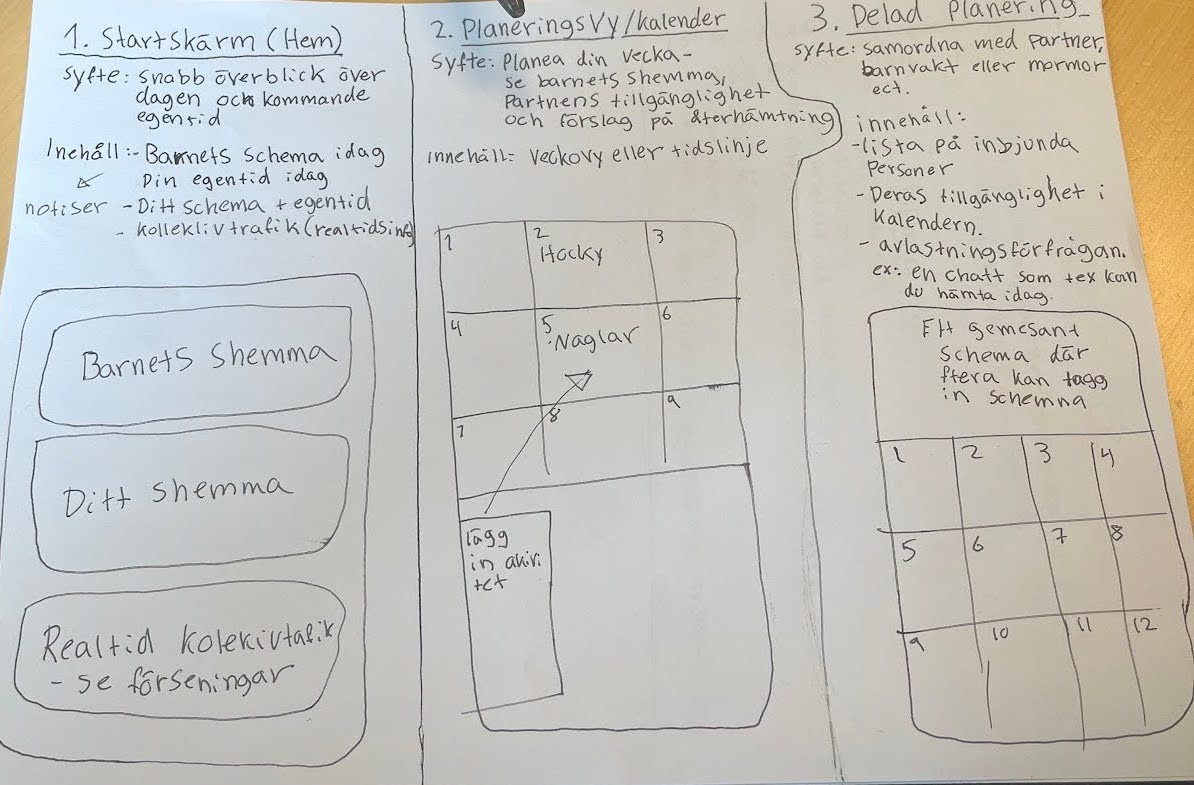 1. Startskärm (Hem)
syfte: snabb överblick över
dagen och kommande
egentid
Inehåll:- Barnets schema idag
Din egentid idag
notiser - Ditt schema + egentid
- kollektivtrafik (realtidsinfo)
Barnets shemma
Ditt shemma
Realtid kolekivtafik
- se förseningar
2. Planeringsvy/kalender
Syfte: Planea din vecka -
se barnets shemma,
Partnens tillgänglighet
och förslag på återhämtning
innehåll: veckovy eller tidslinje
1 2 3
Hocky
4 5 6
Naglar
7 8 9
lägg
in akivi
tet
3. Delad Planering
syfte: samordna med partner,
barnvakt eller mormor
ect.
innehåll:
-lista på inbjunda
Personer
- Deras tillgänglighet i
kalendern.
- avlastningsförfrågan.
ex: en chatt som tex kan
du hämta idag.
Ett gemesant
schema där
flera kan lagg
in schemna
1 2 3 4
5 6 7 8
9 10 11 12